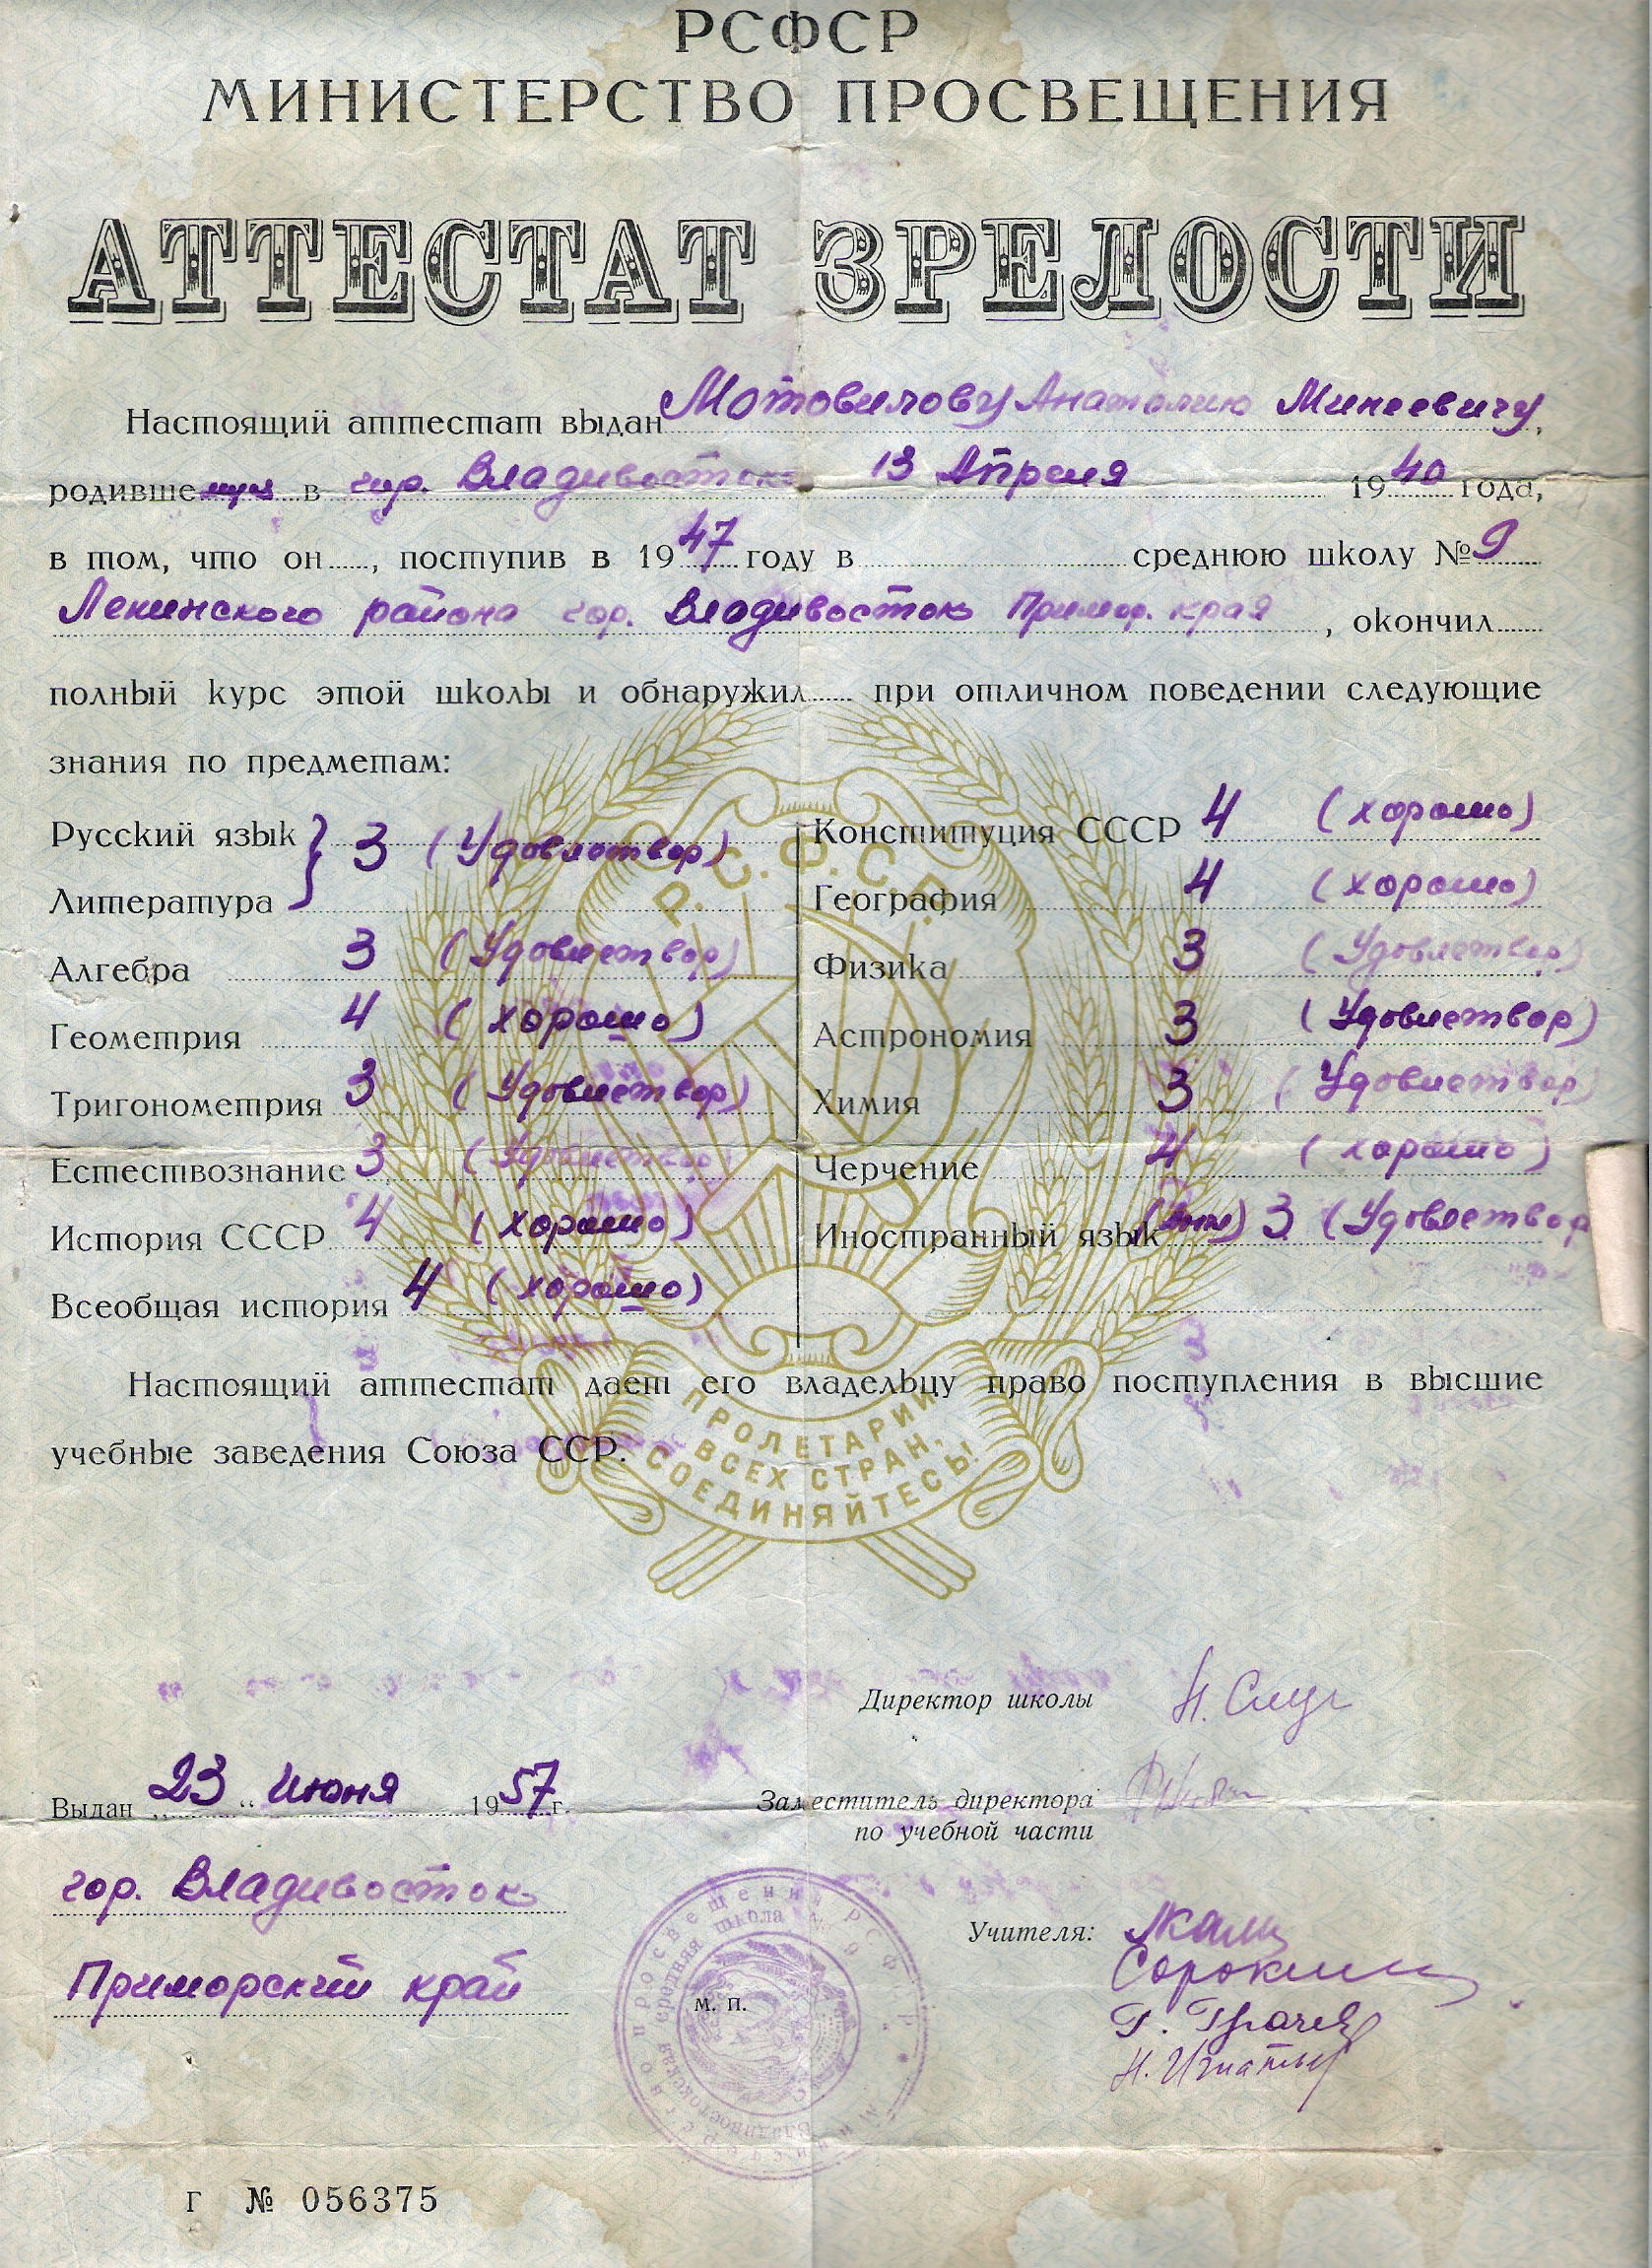 РСФСР
МИНИСТЕРСТВО ПРОСВЕЩЕНИЯ
АТТЕСТАТ ЗРЕЛОСТИ
Настоящий аттестат выдан Мотовилову Анатолию Минеевичу,
родившемуся в гор. Владивостоке 13 Апреля 1940 года,
в том, что он , поступив в 1947 году в среднюю школу № 9
Ленинского района гор. Владивосток Примор. края , окончил
полный курс этой школы и обнаружил при отличном поведении следующие
знания по предметам:
Русский язык } 3 (Удовлетвор)
Литература
Алгебра 3 (Удовлетвор)
Геометрия 4 (хорошо)
Тригонометрия 3 (Удовлетвор)
Естествознание 3 (Удовлетвор)
История СССР 4 (хорошо)
Всеобщая история 4 (хорошо)
Конституция СССР 4 (хорошо)
География 4 (хорошо)
Физика 3 (Удовлетвор)
Астрономия 3 (Удовлетвор)
Химия 3 (Удовлетвор)
Черчение 4 (хорошо)
Иностранный язык (Англ) 3 (Удовлетвор
Р.С.Ф.С.Р.
ПРОЛЕТАРИИ
ВСЕХ СТРАН,
СОЕДИНЯЙТЕСЬ!
Настоящий аттестат дает его владельцу право поступления в высшие
учебные заведения Союза ССР.
Директор школы
Выдан „23“ Июня 1957 г.
Заместитель директора
по учебной части
гор. Владивосток
Приморский край
Учителя:
Г. Грачев
м. п.
Министерство просвещения РСФСР
Владивостокская средняя школа № 9
Г № 056375